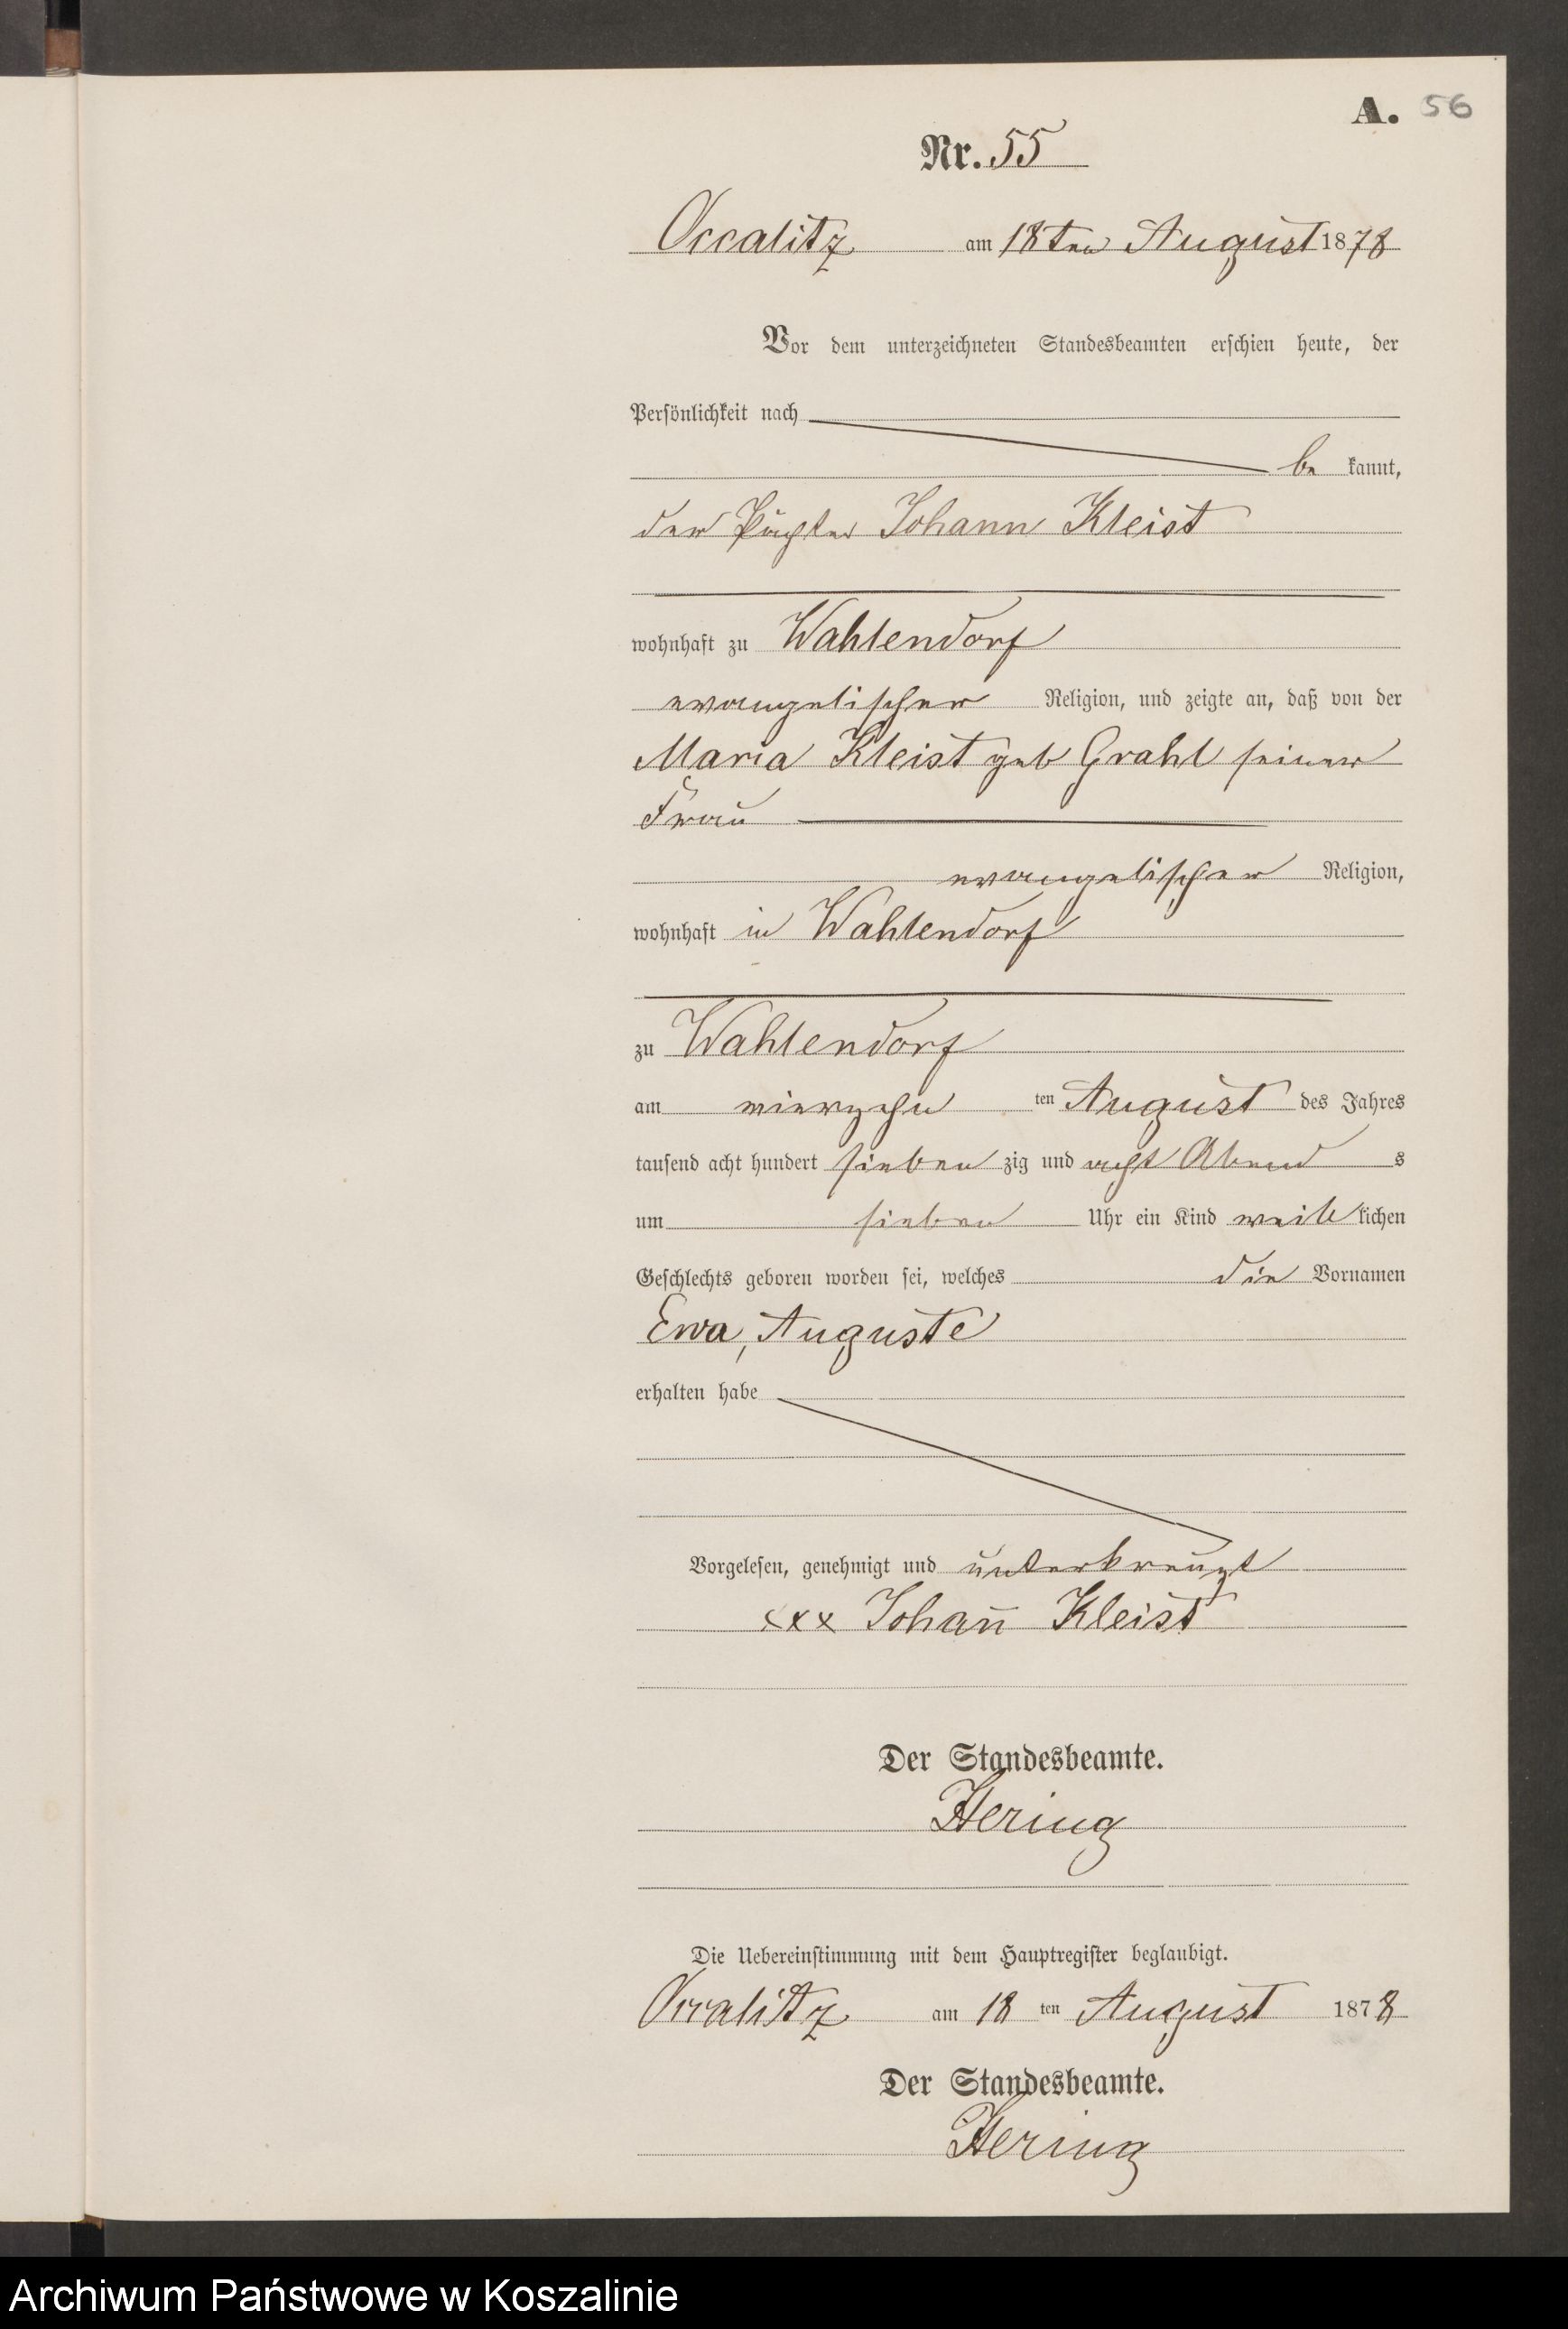 A. 56
Nr. 55
Occalitz am 18ten August 1878
Vor dem unterzeichneten Standesbeamten erschien heute, der
Persönlichkeit nach
be kannt,
der Pächter Johann Kleist
wohnhaft zu Wahlendorf
evangelischer Religion, und zeigte an, daß von der
Maria Kleist geb Grahl seiner
Frau
evangelischer Religion,
wohnhaft in Wahlendorf
zu Wahlendorf
am vierzehn ten August des Jahres
tausend acht hundert sieben zig und acht Abend s
um sieben Uhr ein Kind weib lichen
Geschlechts geboren worden sei, welches die Vornamen
Ewa, Auguste
erhalten habe
Vorgelesen, genehmigt und unterkreuzt
xxx Johan̄ Kleist
Der Standesbeamte.
Hering
Die Uebereinstimmung mit dem Hauptregister beglaubigt.
Occalitz am 18 ten August 1878
Der Standesbeamte.
Hering
Archiwum Państwowe w Koszalinie